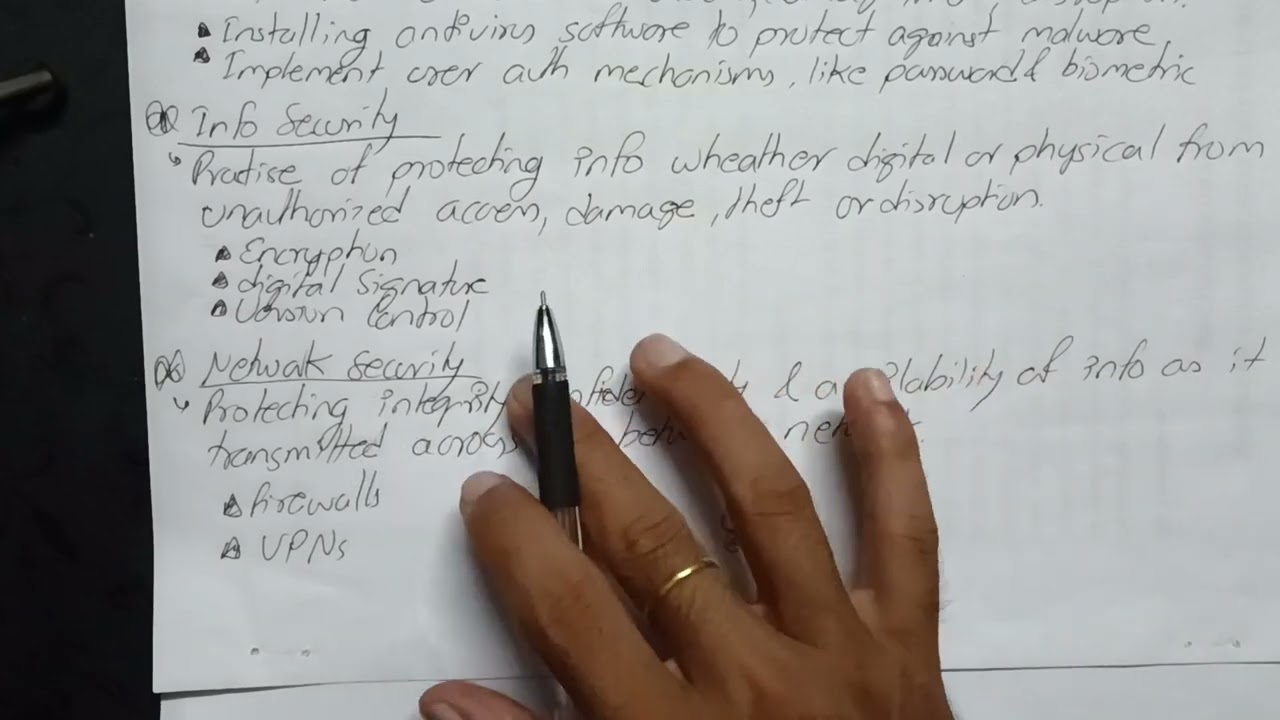 Installing antivirus software to protect against malware,
Implement user auth mechanisms, like password & biometric
Info Security
Practise of protecting info wheather digital or physical from
unauthorized access, damage, theft or disruption.
Encryption
digital Signature
Version Control
Network Security
Protecting integrity & of info as it
transmitted across
firewalls
VPNs